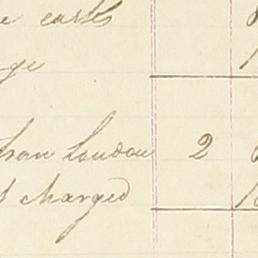 e casks
ge
from London 2
t charged